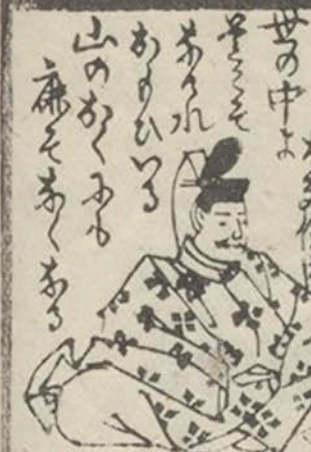 世の中よ
道こそ
なけれ
おもひいる
山のおくにも
鹿そなくなる